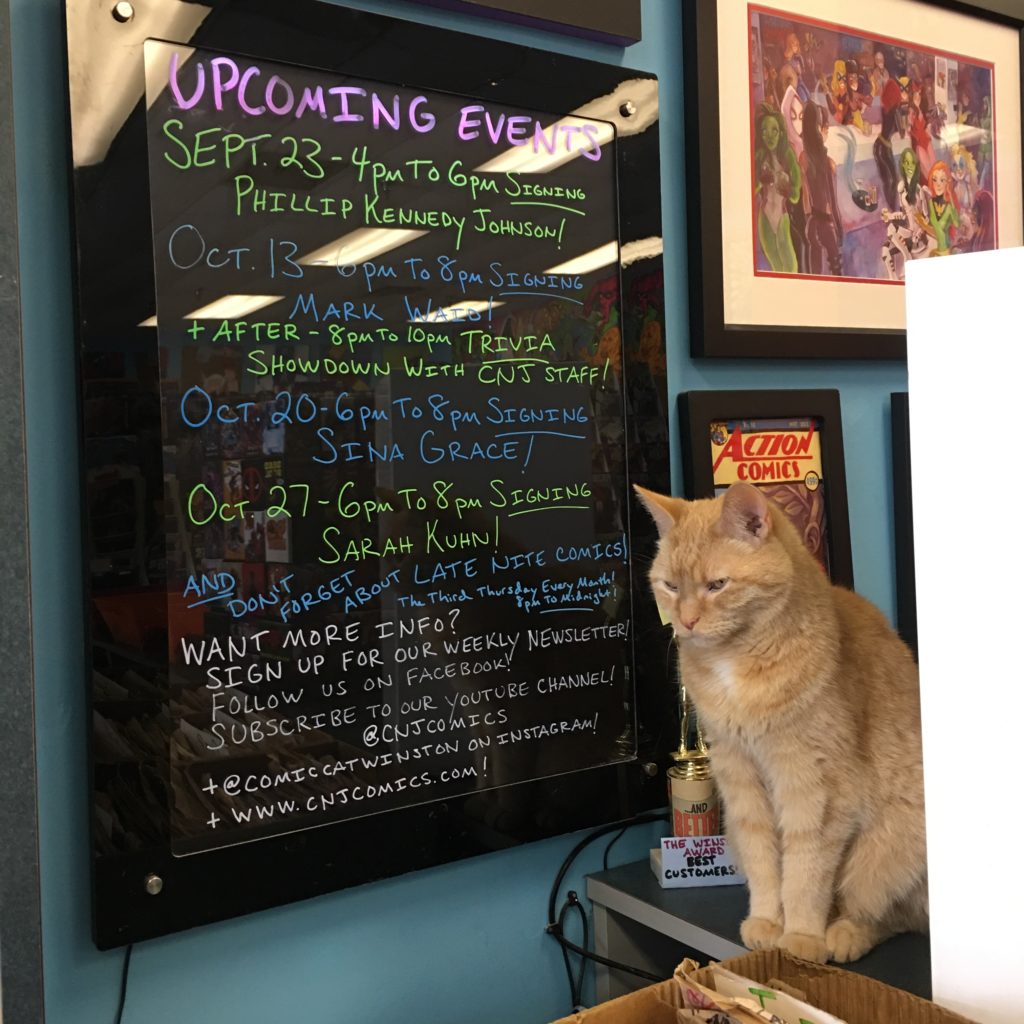 UPCOMING EVENTS
SEPT. 23 - 4pm To 6pm SIGNING
PHILLIP KENNEDY JOHNSON!
OCT. 13 - 6pm To 8pm SIGNING
MARK WAID!
+ AFTER - 8pm To 10pm TRIVIA
SHOWDOWN WITH CNJ STAFF!
OCT. 20 - 6pm To 8pm SIGNING
SINA GRACE!
OCT. 27 - 6pm To 8pm SIGNING
SARAH KUHN!
AND DON'T FORGET ABOUT LATE NITE COMICS!
The Third Thursday Every Month!
8pm To Midnight!
WANT MORE INFO?
SIGN UP FOR OUR WEEKLY NEWSLETTER!
FOLLOW US ON FACEBOOK!
SUBSCRIBE TO OUR YOUTUBE CHANNEL!
@CNJCOMICS
+ @COMICCATWINSTON ON INSTAGRAM!
+ WWW.CNJCOMICS.COM!
ACTION
COMICS
...AND
THE WINS
AWARD
BEST
CUSTOMERS